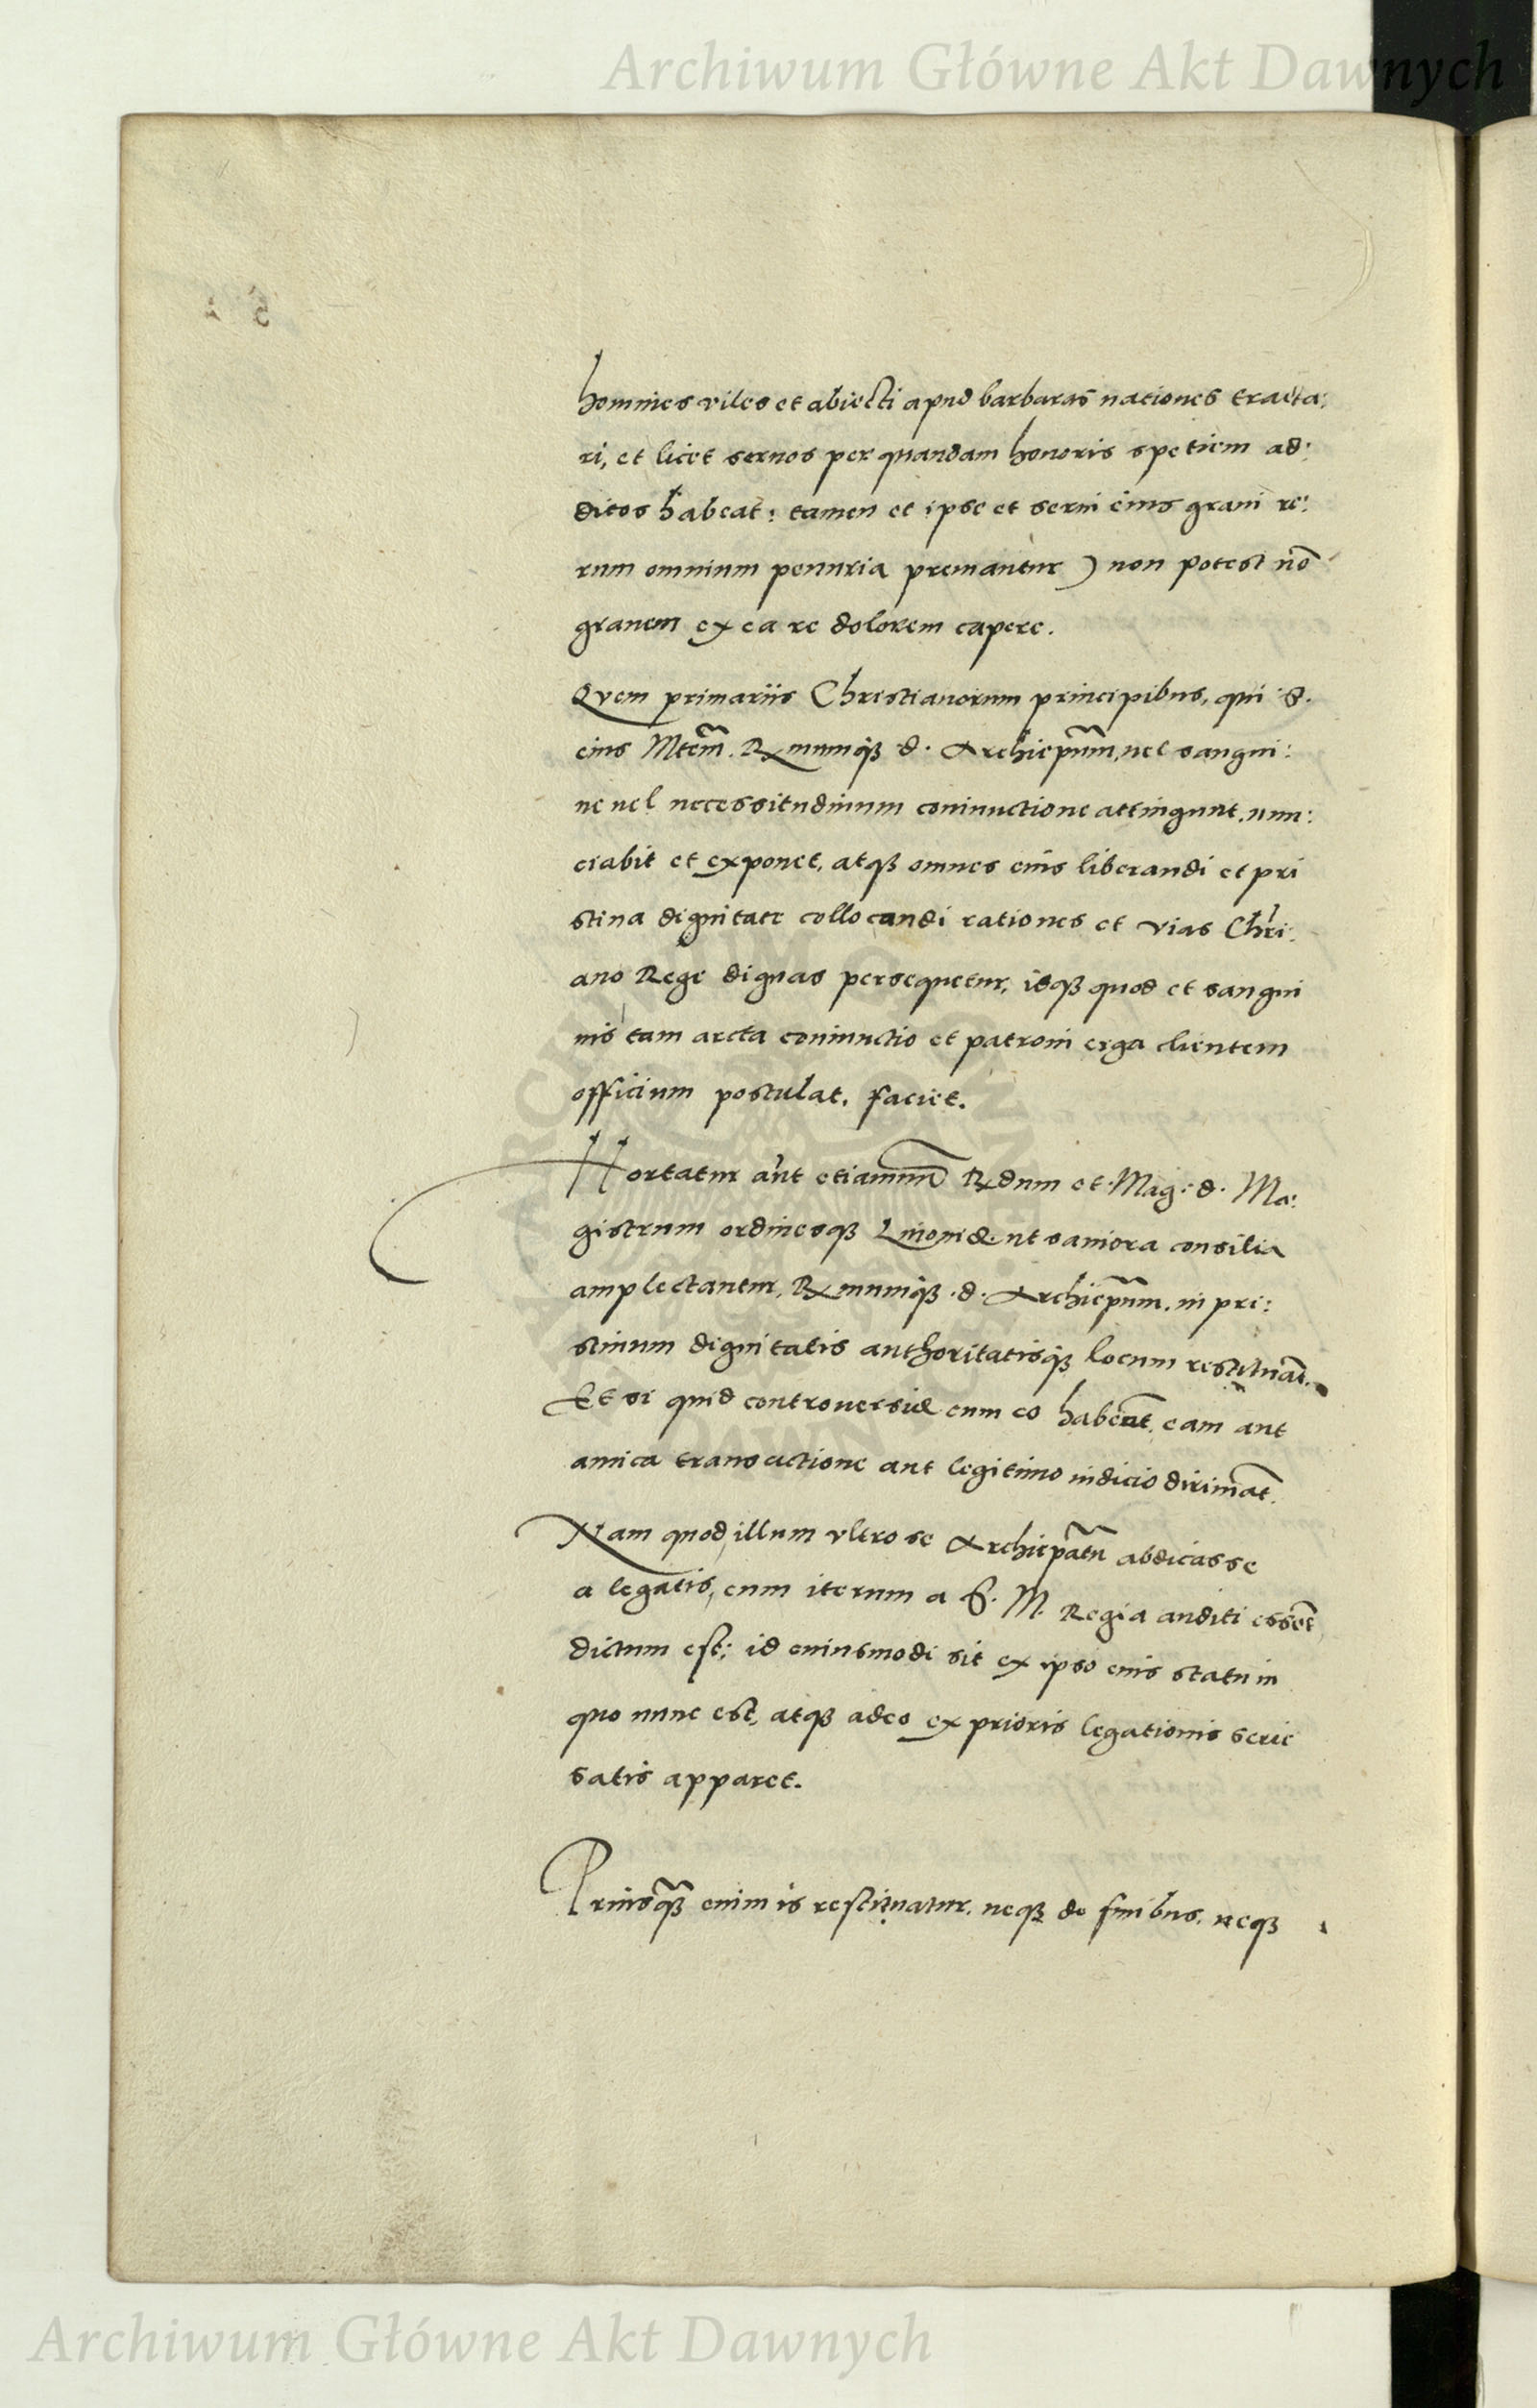 Archiwum Główne Akt Dawnych
homines viles et abiecti apud barbaras nationes tracta:
ri, et licet seruos per quandam honoris spetiem ad:
ditos habeat: tamen et ipse et serui eius graui re:
rum omnium penuria premantur) non potest nō
grauem ex ea re dolorem capere.
Quem primariis Christianorum principibus, qui .d.
eius Mtem̃. Rxmumq̃ .d. Archiepũm, uel sangui:
ne uel necessitudinum coniunctione attingunt, nun:
ciabit et exponet, atqȝ omnes eius liberandi et pri
stina dignitate collocandi rationes et vias Chri:
ano Rege dignas persequetur, idqȝ quod et sangui
nis tam arcta coniunctio et patroni erga clientem
officium postulat, faciet.
Hortatur aũt etiamnũ Rxdum et Mag: d. Ma:
gistrum ordinesqȝ Liuoniæ ut saniora consilia
amplectantur, Rxmumq̃ .d. Archiepũm, in pri:
stinum dignitatis authoritatisq̃ locum restituãt.
Et si quid controuersiæ cum eo habeñt, eam aut
amica transactione aut legitimo iudicio dirimãt.
Nam quod illum vltro se Archiepãtu abdicasse
a legatis, cum iterum a S. M. Regia auditi essẽt
dictum est; id cuiusmodi sit ex ipso eius statu in
quo nunc est, atqȝ adeo ex prioris legationis serie
satis apparet.
Priusq̃ȝ enim is restituatur, neqȝ de finibus, neqȝ
Archiwum Główne Akt Dawnych